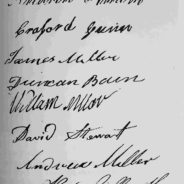 Craford Guinn
James Miller
Duncan Bain
William Miller
David Stewart
Andrew Miller